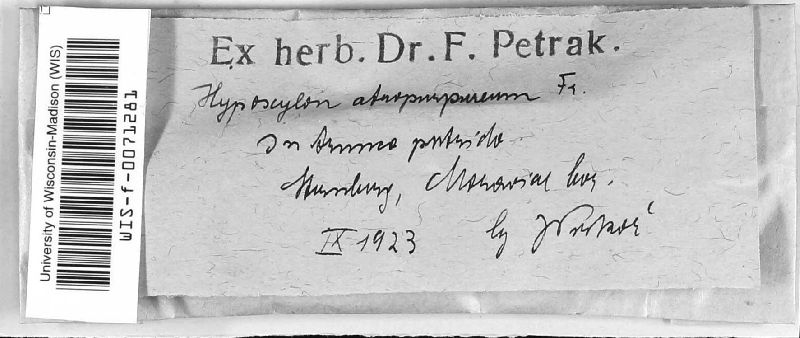 University of Wisconsin-Madison (WIS)
WIS-f-0071281
Ex herb. Dr. F. Petrak.
Hypoxylon atropurpureum Fr.
In trunco putrido
Sternberg, Moraviae bor.
IX 1923 lg